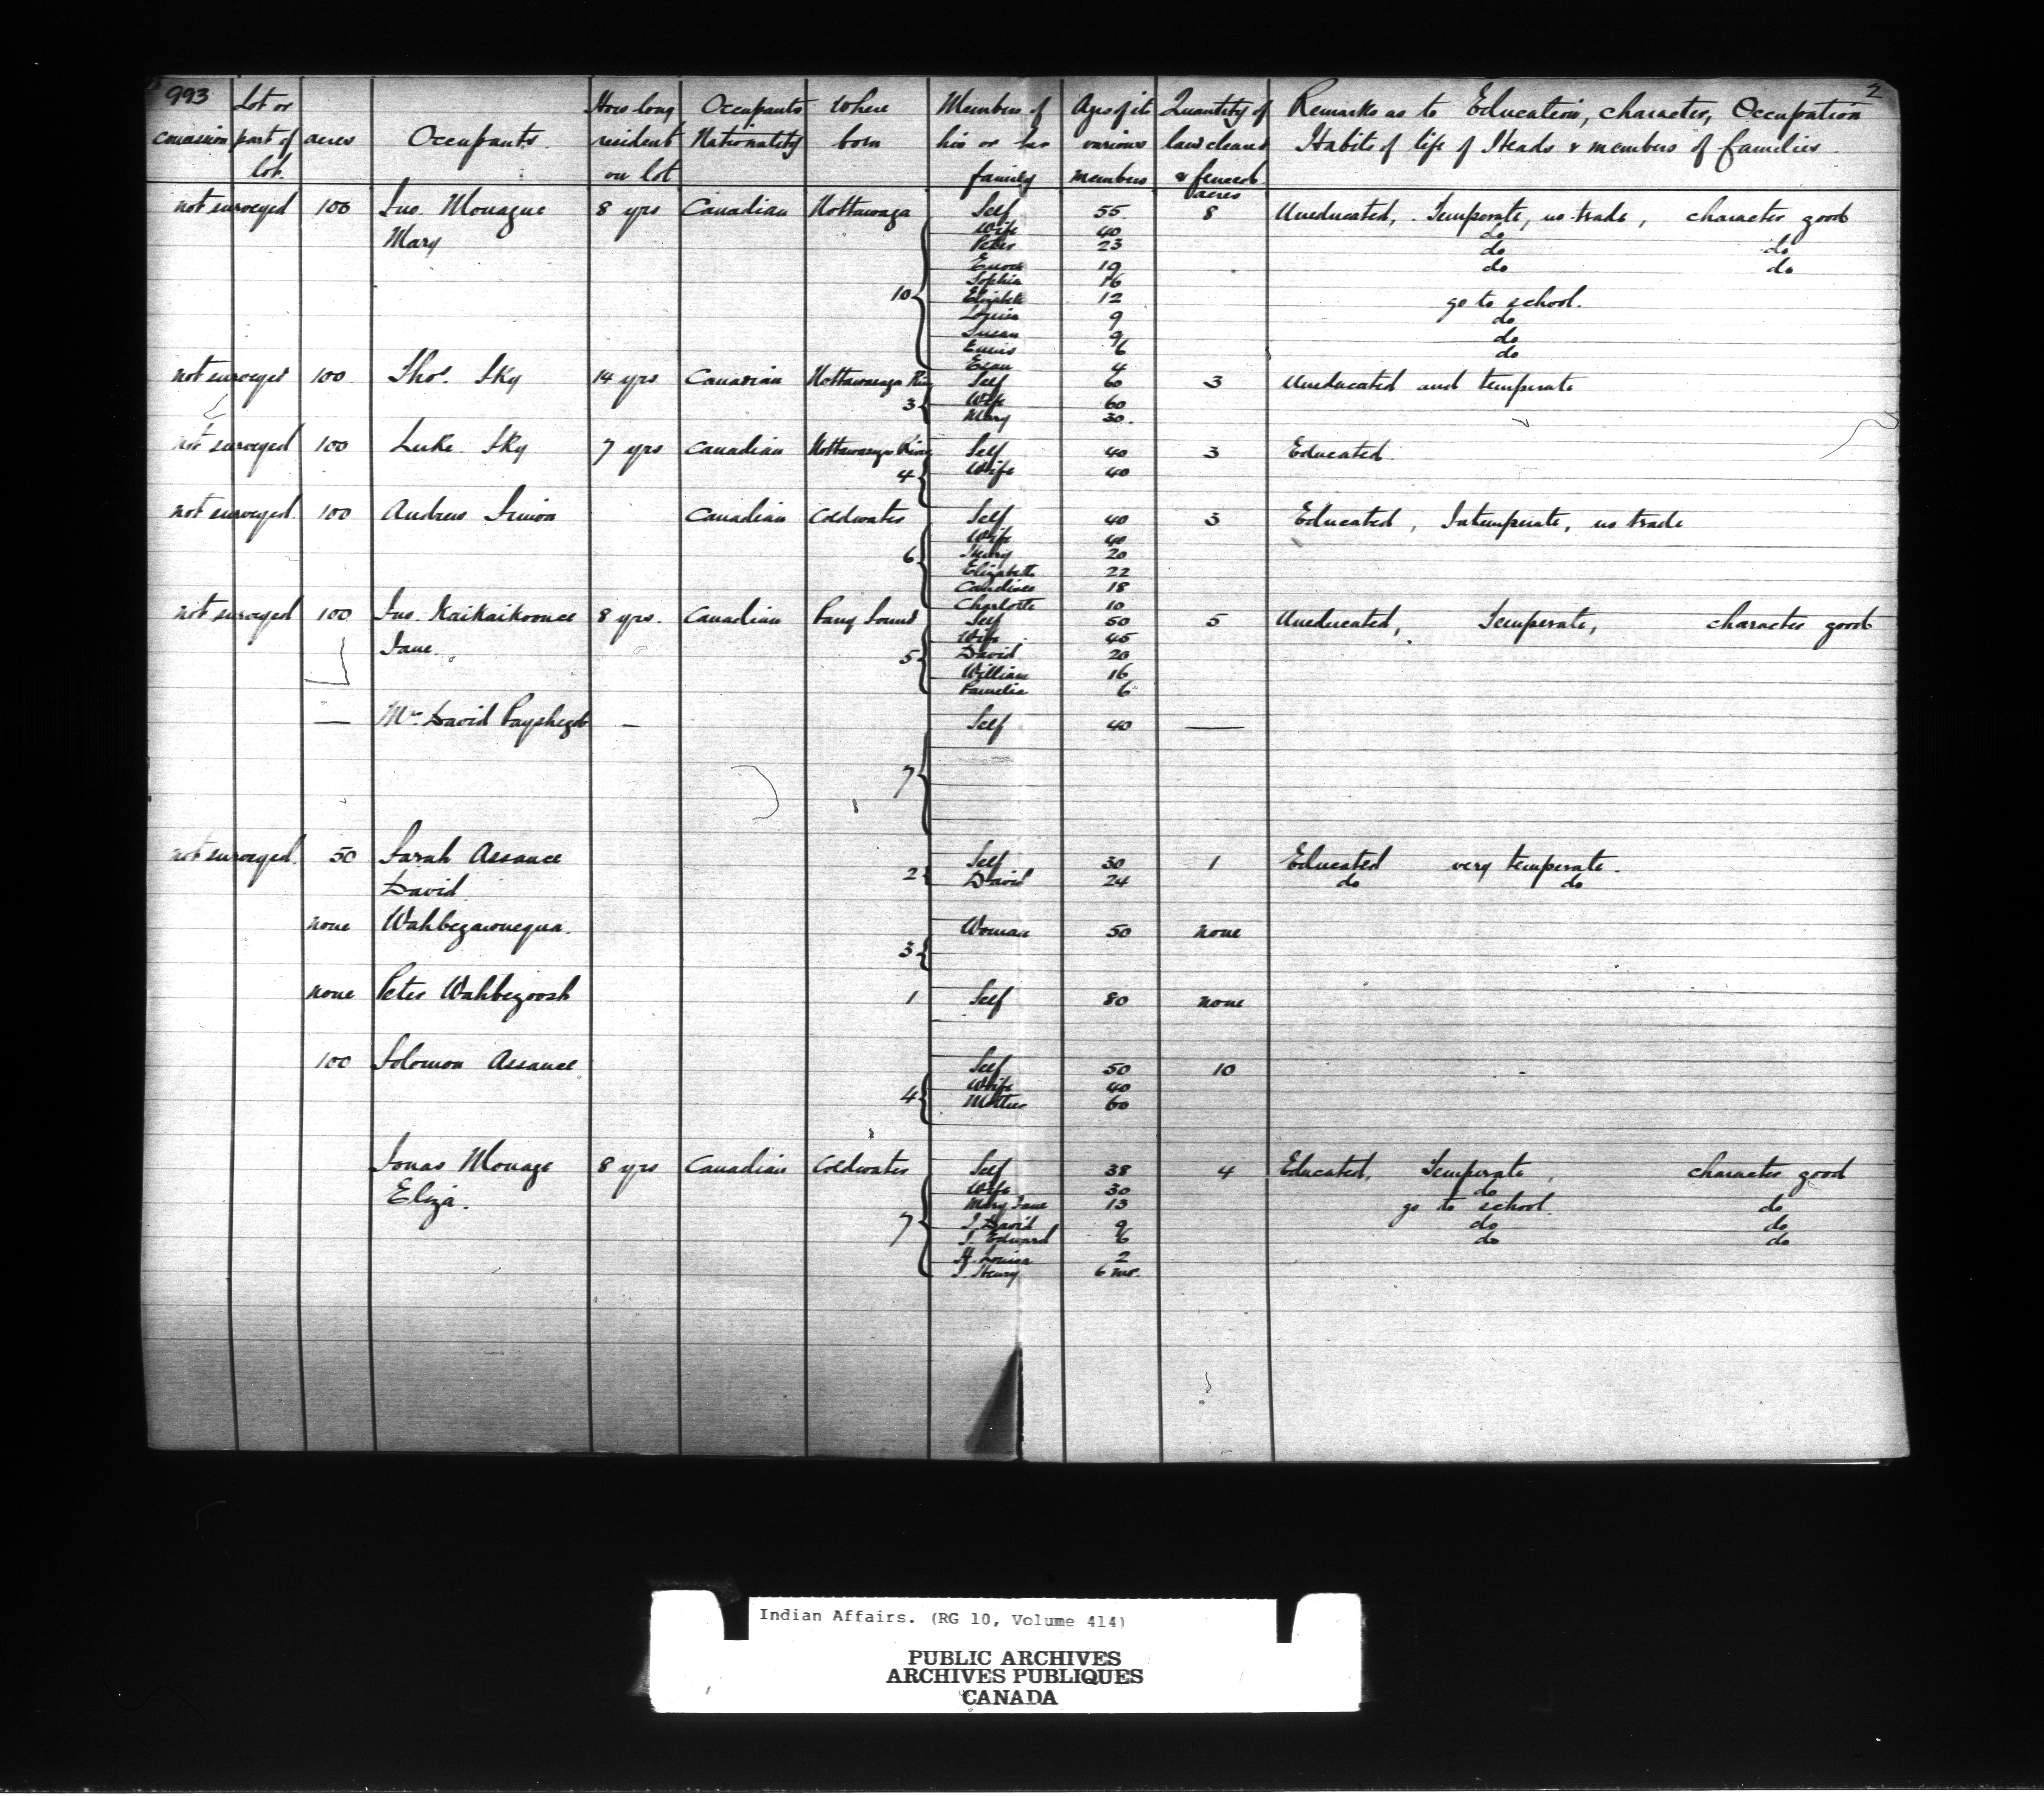 993 Lot or How long Occupants Where Members of Ages of its Quantity of Remarks as to Education, character, Occupation 2
concession part of acres Occupants. resident Nationality born his or her various land cleared Habits of life of Heads & members of families.
lot. on lot family members & fenced
acres
not surveyed 100 Jno. Monague 8 yrs Canadian Nottawaga Self 55 8 Uneducated, Temperate, no trade, character good
Mary Wife 40 do
Peter 23 do do
Enoch 19 do do
Sophia 16
10 Elizabeth 12 go to school.
Louisa 9 do
Susan 9 do
6 do
4
not surveyed 100 Thos. Sky 14 yrs Canadian Nottawasaga Riv Self 60 3 Uneducated and temperate
3 Wife 60
Mary 30.
not surveyed 100 Luke Sky 7 yrs Canadian Nottawasaga River Self 40 3 Educated.
4 Wife 40
not surveyed. 100 Andrew Simon Canadian Coldwater Self 40 3 Educated, Intemperate, no trade
Wife 40
6 Henry 20
Elizabeth 22
18
Charlotte 10
not surveyed 100 Jno. Kaikaikoonce 8 yrs. Canadian Parry Sound Self 50 5 Uneducated, Temperate, character good
Jane. Wife 45
5 David 20
William 16
Pamelia 6
— Mr. David Payshegob — Self 40 —
7
not surveyed. 50 Sarah Assance Self 30 1 Educated very temperate.
David 2 David 24 do do
none Wahbegawnequa. Woman 50 none
3
none Peter Wahbegoosh 1 Self 80 none
100 Solomon Assance Self 50 10
4 Wife 40
Mother 60
Jonas Monage 8 yrs Canadian Coldwater Self 38 4 Educated, Temperate, character good
Eliza. Wife 30 do
Mary Jane 13 go to school. do
7 J. David 9 do do
J. Edward 6 do do
H. Louisa 2
J. Henry 6 mo.
Indian Affairs. (RG 10, Volume 414)
PUBLIC ARCHIVES
ARCHIVES PUBLIQUES
CANADA